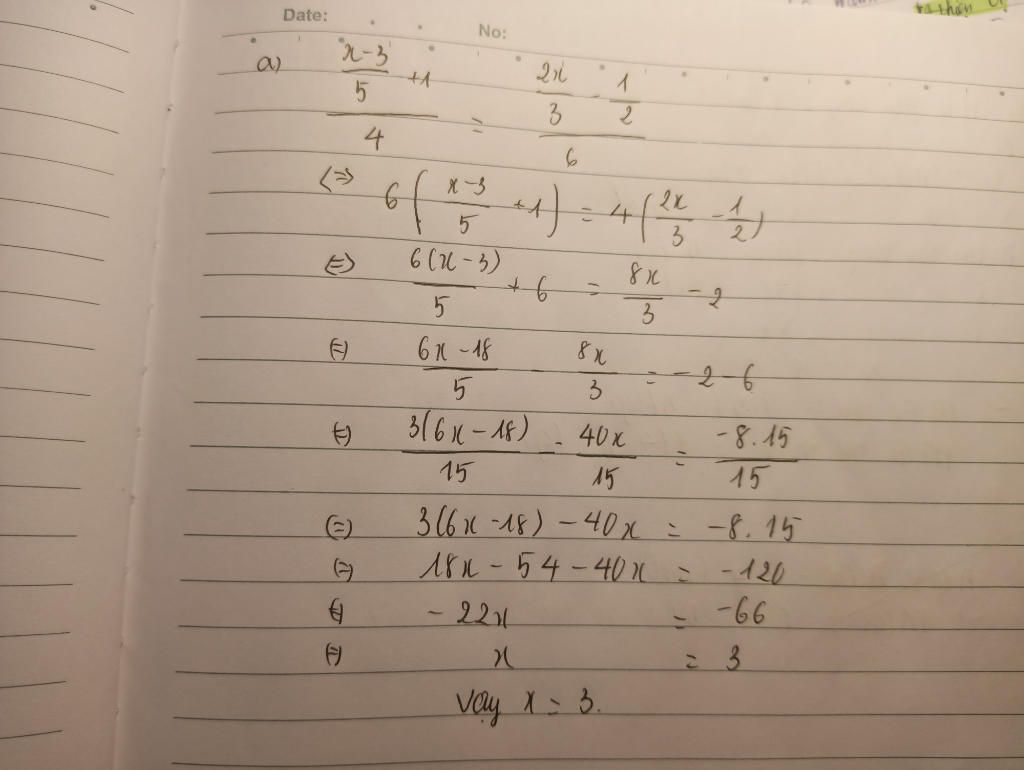 Date:
No:
a) ((x-3)/5 + 1)/4 = (2x/3 - 1/2)/6
<=> 6((x-3)/5 + 1) = 4(2x/3 - 1/2)
<=> 6(x-3)/5 + 6 = 8x/3 - 2
<=> (6x-18)/5 - 8x/3 = -2-6
<=> 3(6x-18)/15 - 40x/15 = -8.15/15
<=> 3(6x-18) - 40x = -8.15
<=> 18x - 54 - 40x = -120
<=> -22x = -66
<=> x = 3
Vậy x = 3.